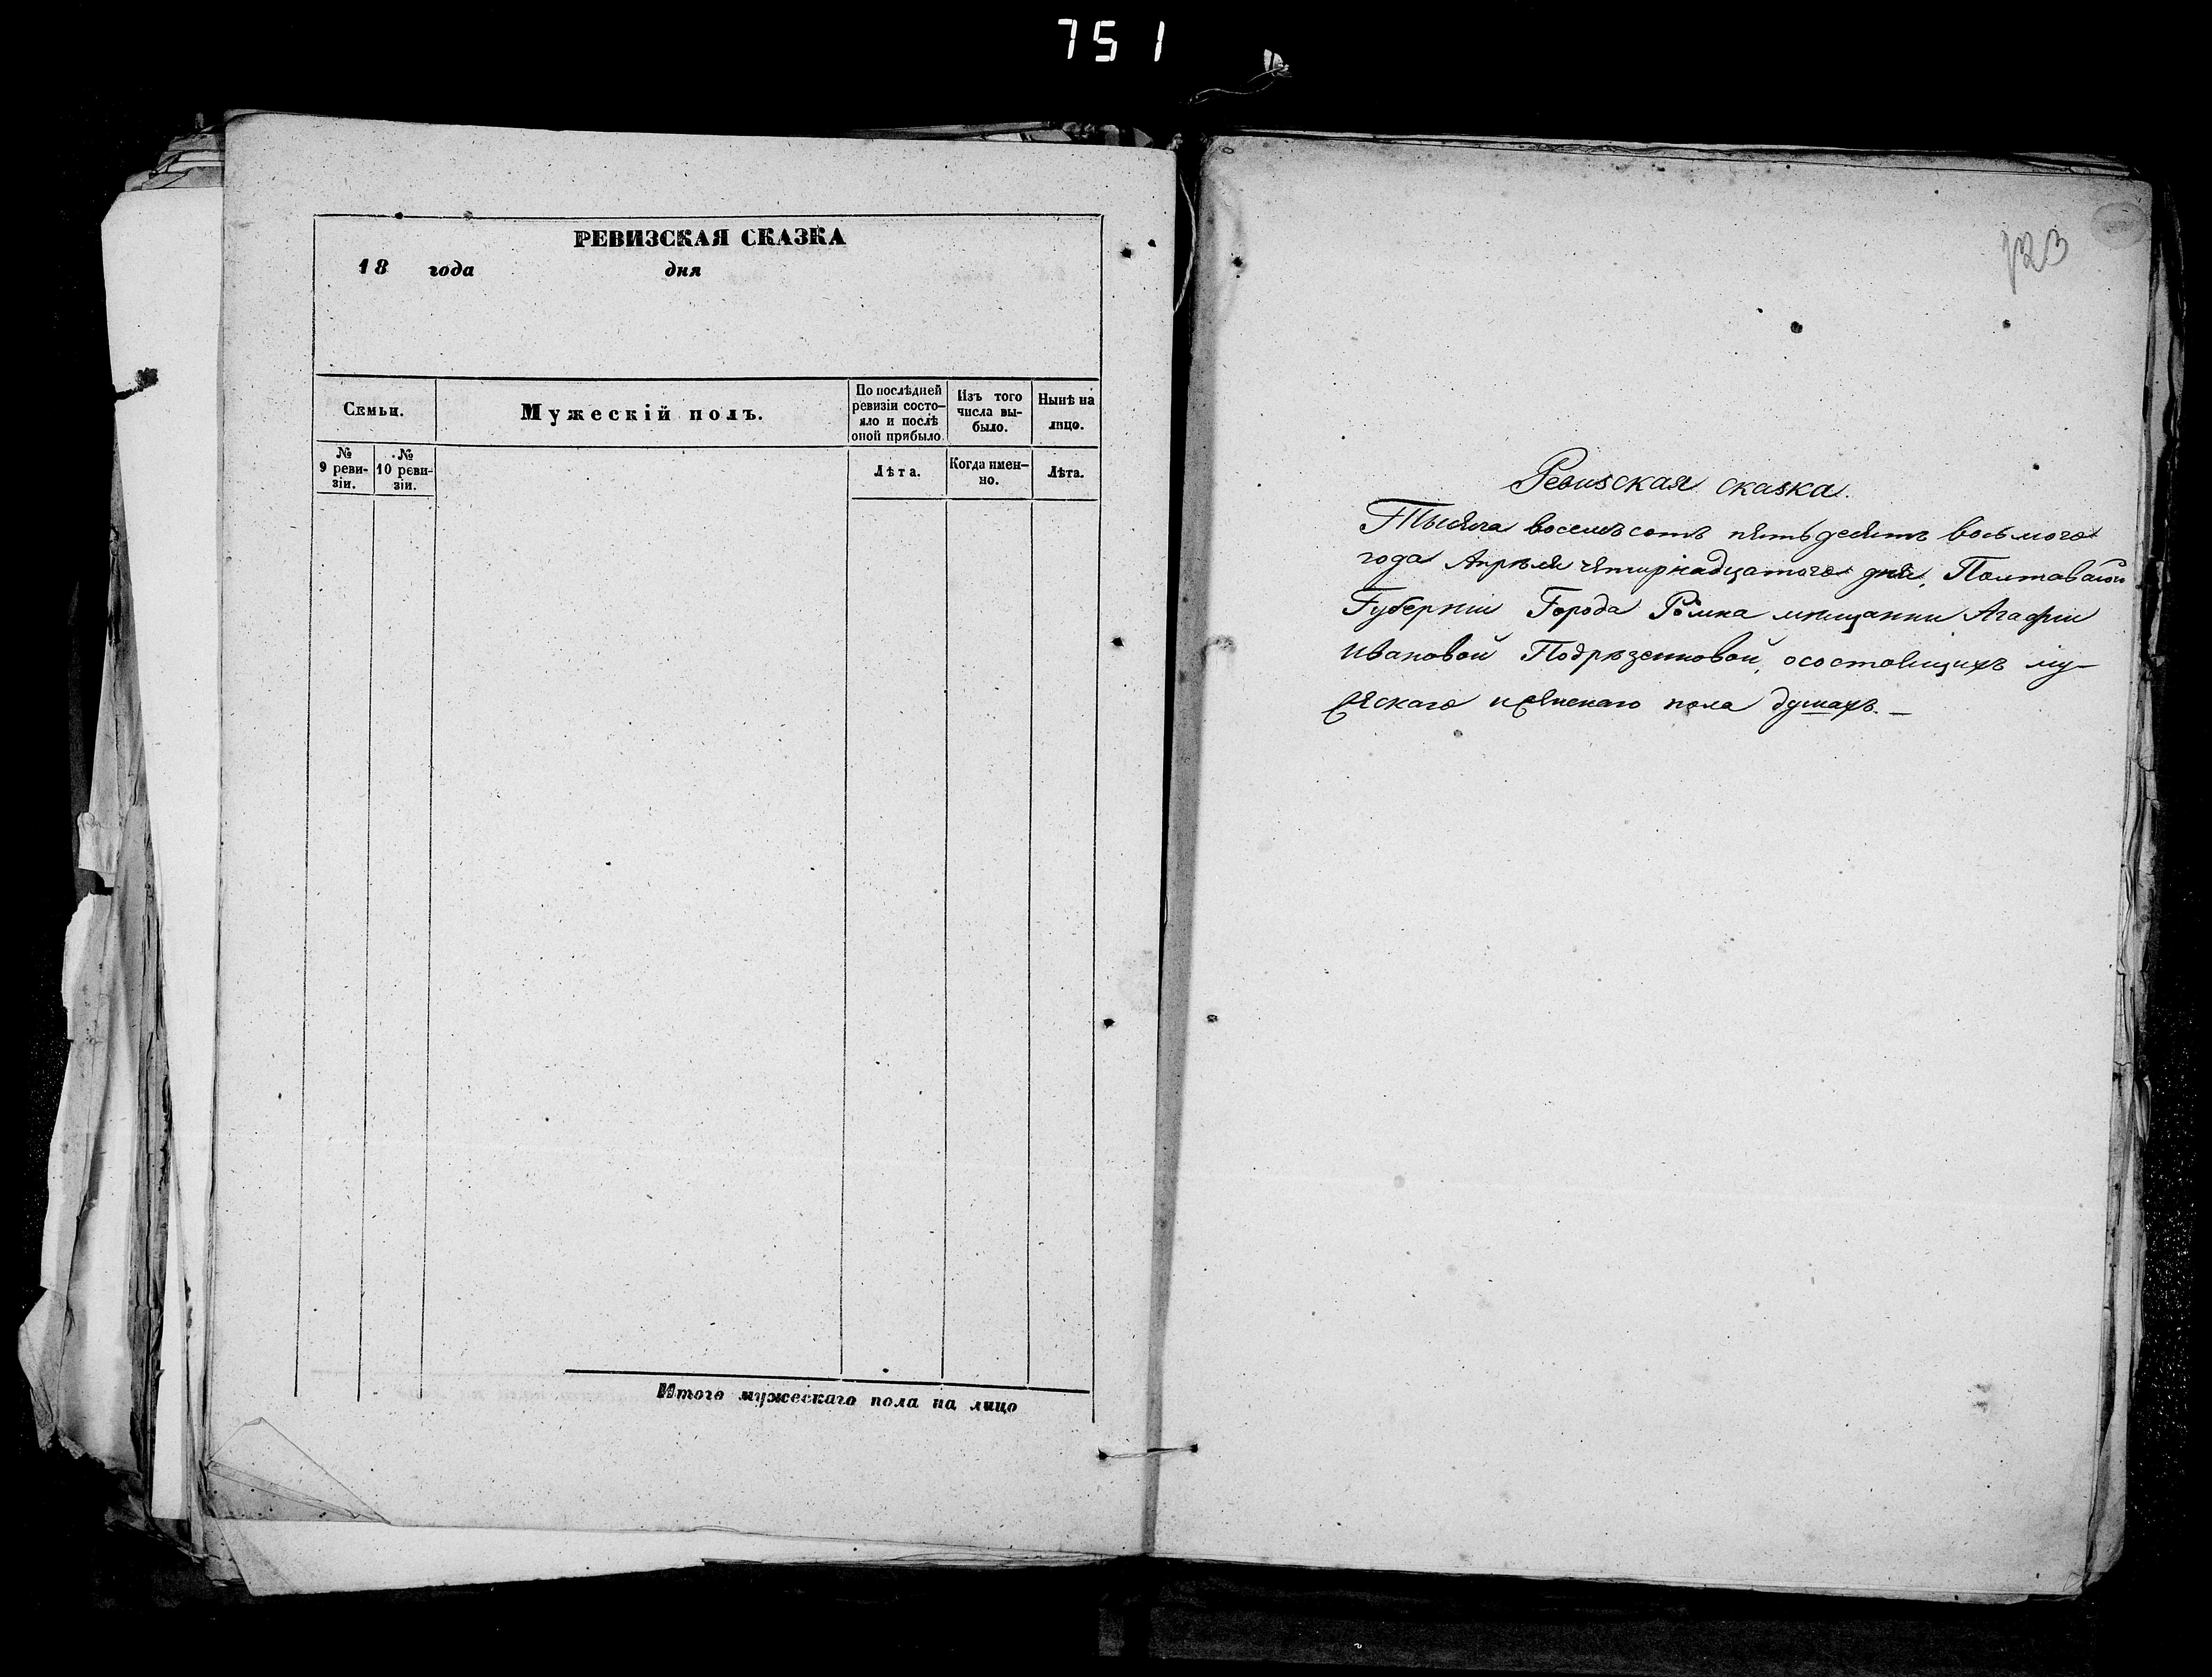 751
РЕВИЗСКАЯ СКАЗКА
18 года дня
Семьи.
Мужескій полъ.
По послѣдней
ревизіи состо-
яло и послѣ
оной прибыло
Изъ того
числа вы-
было.
Нынѣ на
лицо.
№
9 реви-
зіи.
№
10 реви-
зіи.
Лѣта.
Когда имен-
но.
Лѣта.
Итого мужескаго пола на лицо
123
Ревизская сказка.
Тысяча восемъсотъ пятьдесятъ восьмого
года Апрѣля чятирнадцатого дня, Полтавской
Губерніи Города Ромна мѣщанки Агафіи
Ивановой, осостоящихъ му-
жяскаго ижянскаго пола душахъ. —